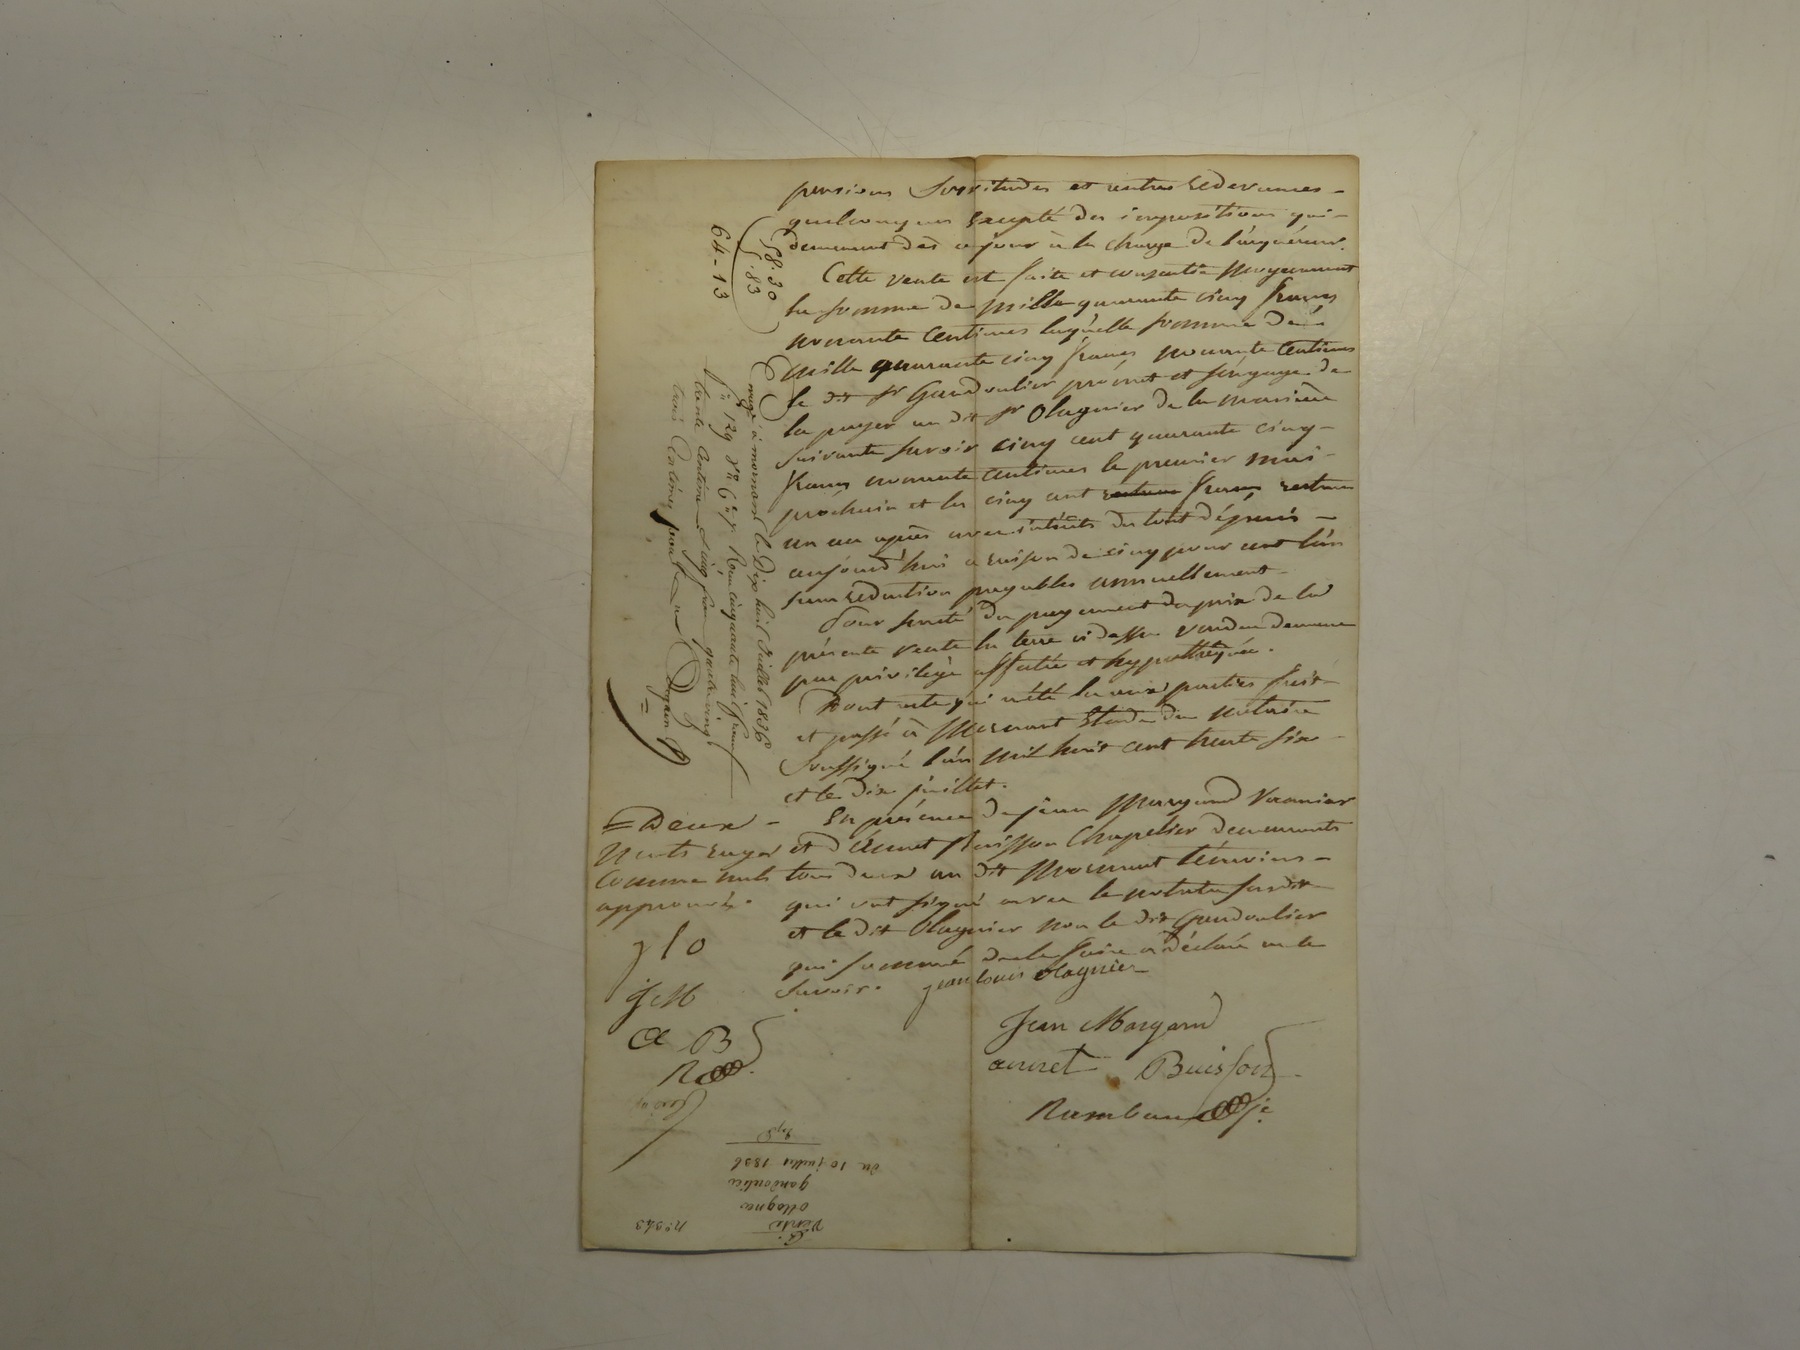 pensions Servitudes et autres Redevances -
quelconques Excepté des impositions qui -
demeurent dès ce jour à la charge de l'acquéreur.
Cette vente est faite et consentie moyennant
la somme de mille quarante cinq francs
nonante Centimes laquelle somme de
mille quarante cinq francs nonante Centimes
le dit Sr Gandoulier promet et s'engage de
la payer au dit Sr Olagnier de la manière
suivante savoir cinq cent quarante cinq -
francs nonante centimes le premier mai -
prochain et les cinq cent francs restans
un an après avec intérêts du tout dépuis -
aujourd'hui à raison de cinq pour cent l'an
sans réduction payables annuellement -
Pour sureté du payement du prix de la
présente vente la terre ci dessus vendue demeure
par privilège affectée et hypothéquée.
Dont acte qui a été lu aux parties fait
et passé à Mornant Etude du notaire
soussigné l'an mil huit cent trente six -
et le dix juillet.
En présence de jean Margand
et d'Annet Buisson Chapelier demeurants
tous deux au dit Mornant témoins -
qui ont signé avec le notaire susdit
et le dit Olagnier non le dit Gandoulier
qui sommé de le faire a déclaré ne le
savoir. jean louis olagnier
Jean Margand
annet Buisson
Rambaud
= Deux -
Mots rayés
Comme nuls
approuvés.
j l o
J M
a B
R
58.30
5.83
64-13
Enregé à mornant le Dix huit Juillet 1836
fo 129 Ro C 6 &amp; 7 Reçu cinquante huit francs
trente Centimes &amp; cinq francs quatre vingt
trois Centimes pour
Vente
ollagner
gandoulier
du 10 juillet 1836
Expé